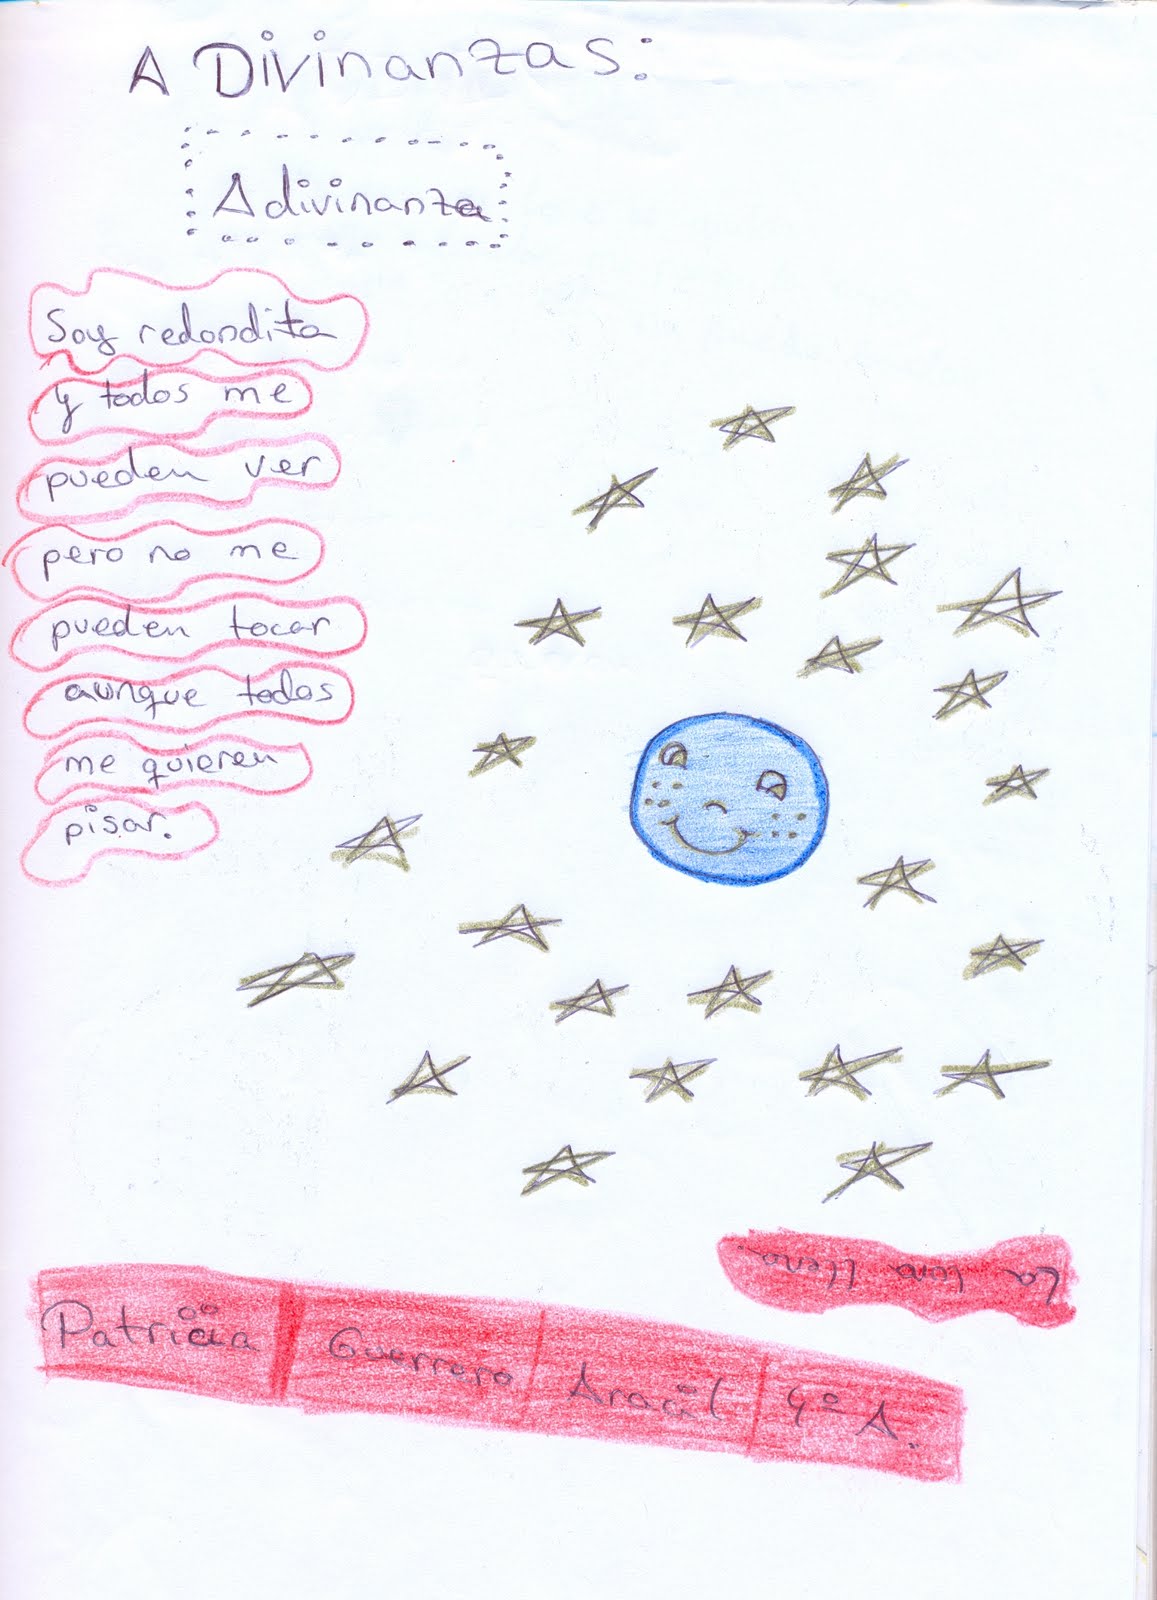 A Divinanzas:
Adivinanza
Soy redondita
y todos me
pueden ver
pero no me
pueden tocar
aunque todos
me quieren
pisar.
La luna LLena.
Patricia Guerrero Aracil 4º A.